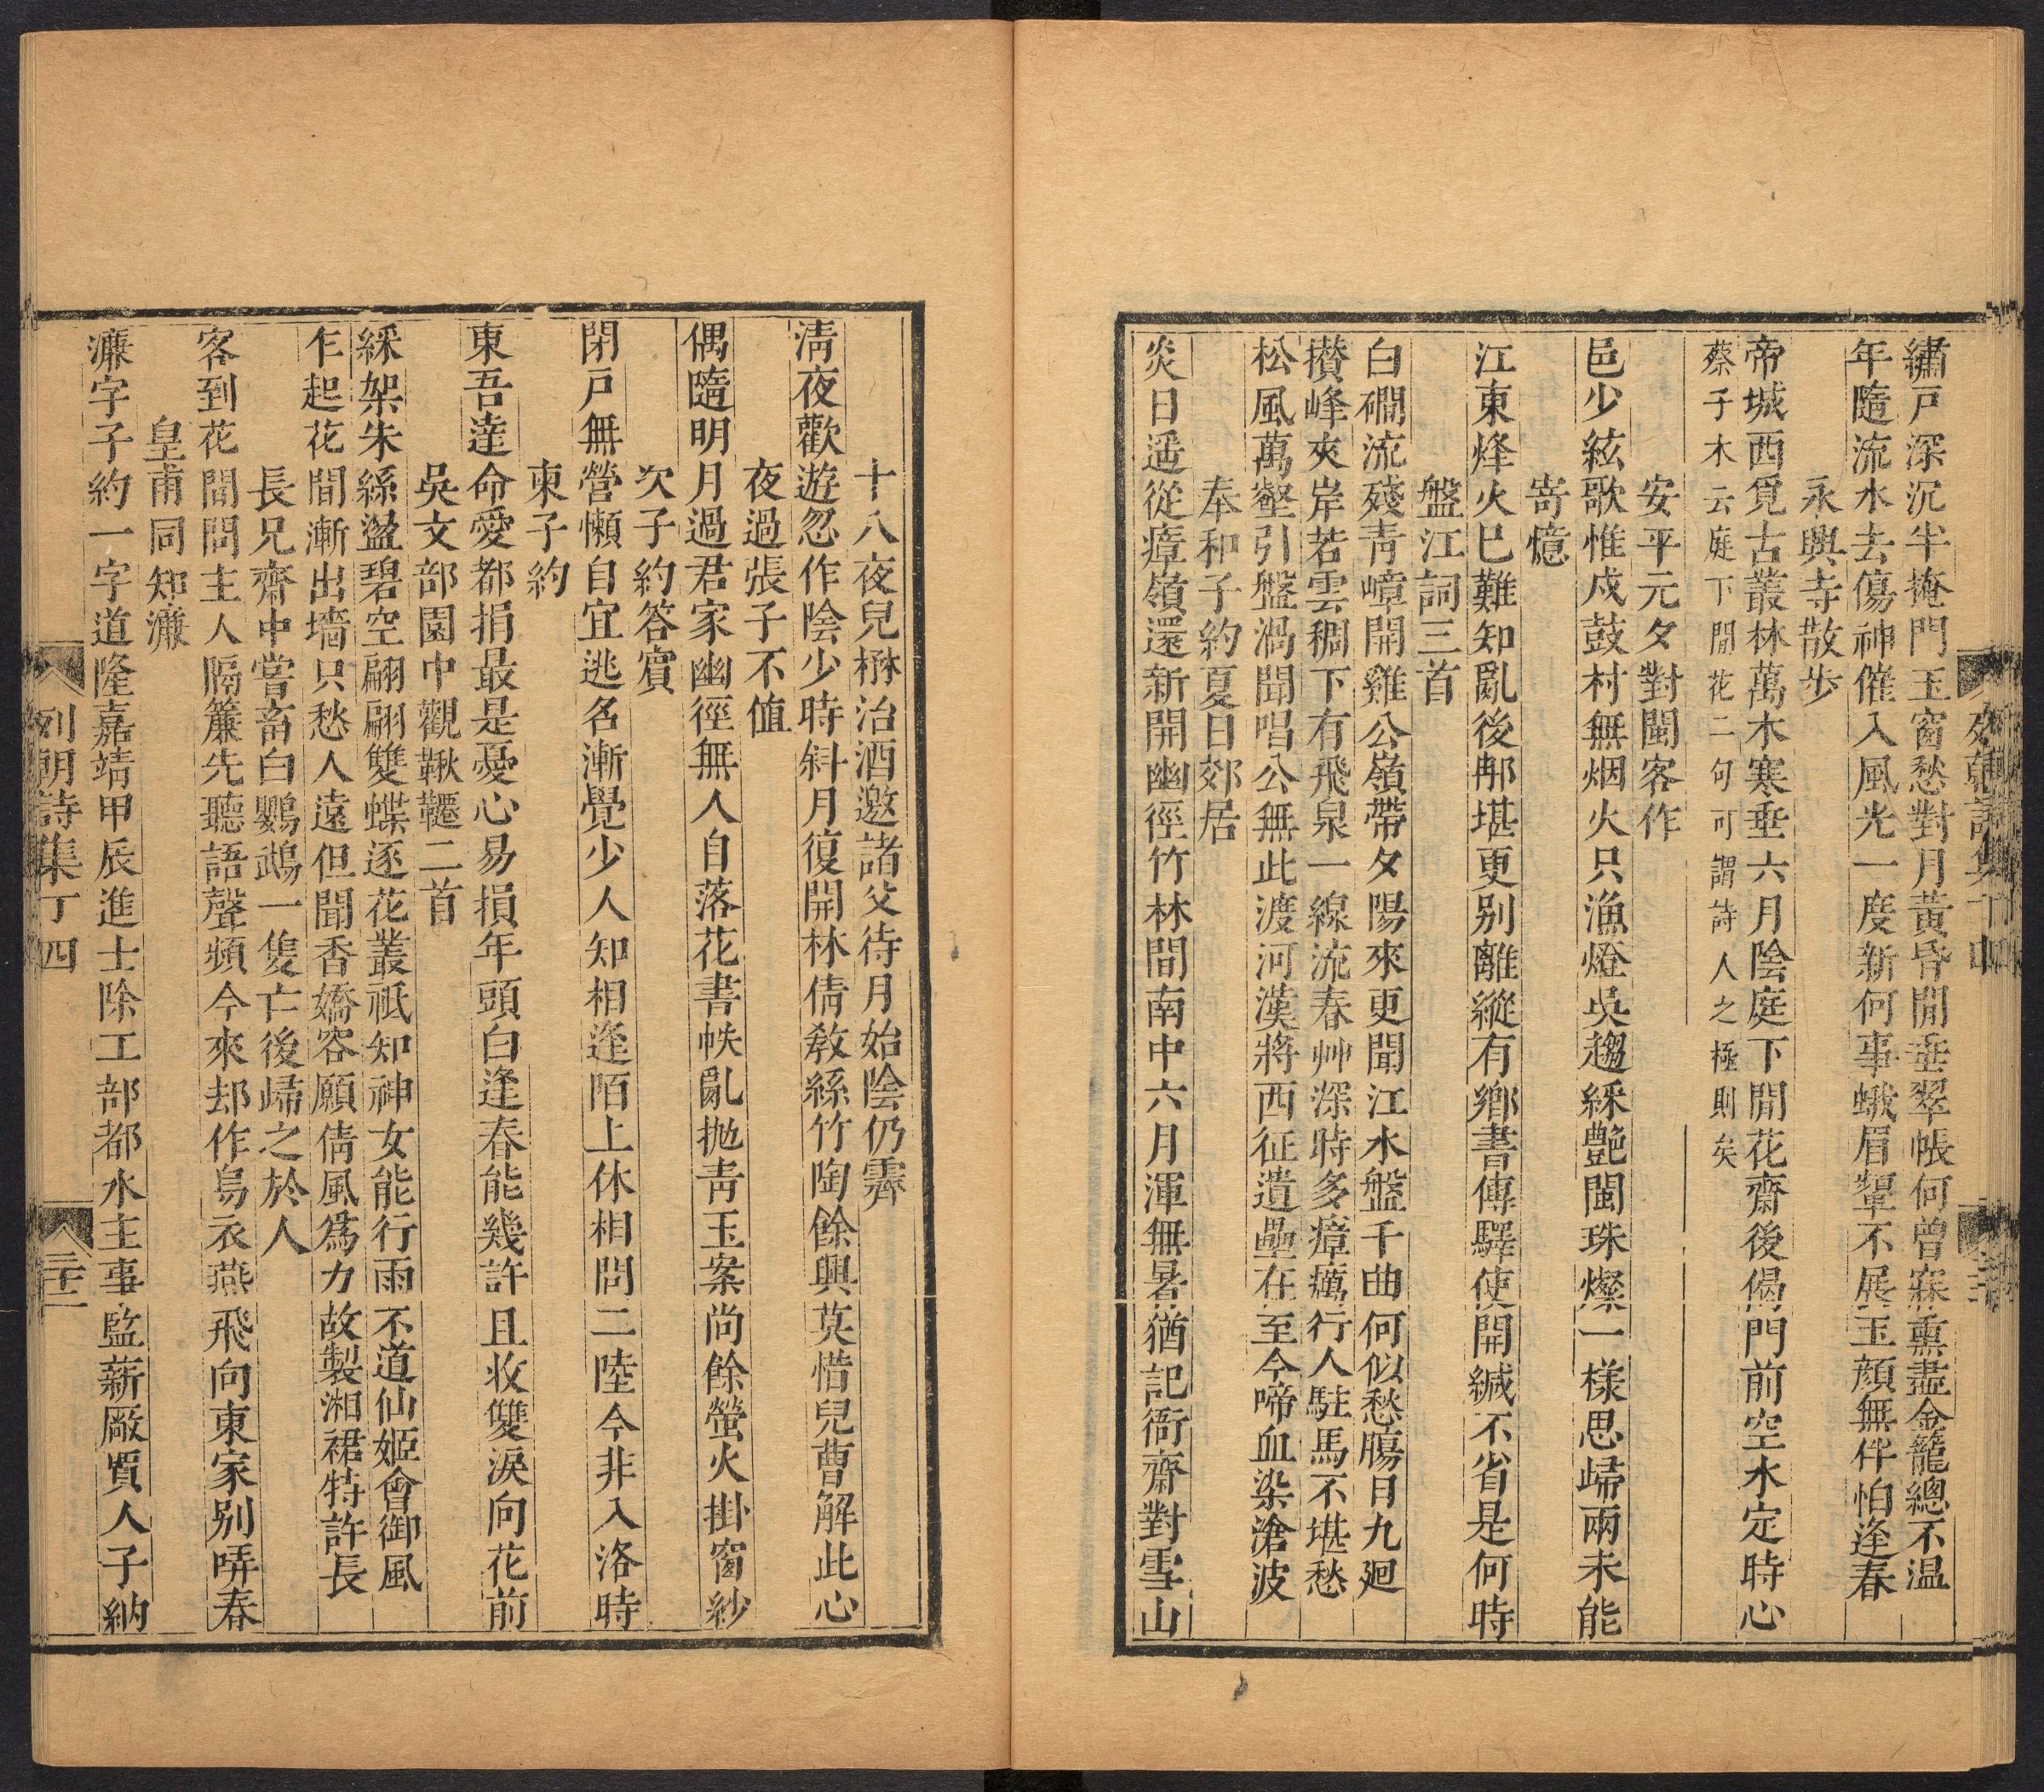 繡戸深沉半掩門玉窗愁對月黃昏閒垂翠帳何曾寐熏盡金籠總不温
年隨流水去傷神催入風光一度新何事蛾眉顰不展玉顔無伴怕逢春
永興寺散步
帝城西覓古叢林萬木寒垂六月陰庭下閒花齋後偈門前空水定時心
蔡子木云庭下閒花二句可謂詩人之極則矣
安平元夕對閩客作
邑少絃歌惟戍鼓村無烟火只漁燈吳趨綵艷閩珠燦一樣思歸兩未能
寄憶
江東烽火巳難知亂後那堪更别離縱有鄉書傳驛使開緘不省是何時
盤江詞三首
白磵流殘靑嶂開雞公嶺帶夕陽來更聞江水盤千曲何似愁腸日九廻
攅峰夾岸若雲稠下有飛泉一線流春艸深時多瘴癘行人駐馬不堪愁
松風萬壑引盤渦聞唱公無此渡河漢將西征遺壘在至今啼血染滄波
奉和子約夏日郊居
炎日遥從瘴嶺還新開幽徑竹林間南中六月渾無暑猶記衙齋對雪山
十八夜兒楙治酒邀諸父待月始陰仍霽
淸夜歡遊忽作陰少時斜月復開林倩敎絲竹陶餘興莫惜兒曹解此心
夜過張子不值
偶隨明月過君家幽徑無人自落花書帙亂抛靑玉案尚餘螢火掛窗紗
次子約答賓
閉戸無營懶自宜逃名漸覺少人知相逢陌上休相問二陸今非入洛時
柬子約
東吾達命愛都捐最是憂心易損年頭白逢春能幾許且收雙淚向花前
吳文部園中觀鞦韆二首
綵架朱絲盪碧空翩翩雙蝶逐花叢祇知神女能行雨不道仙姬會御風
乍起花間漸出墻只愁人遠但聞香嬌容願倩風爲力故製湘裙特許長
長兄齋中嘗畜白鸚鵡一隻亡後歸之於人
客到花間問主人隔簾先聽語聲頻今來却作烏衣燕飛向東家别哢春
皇甫同知濂
濂字子約一字道隆嘉靖甲辰進士除工部都水主事監薪厰賈人子納
列朝詩集丁四